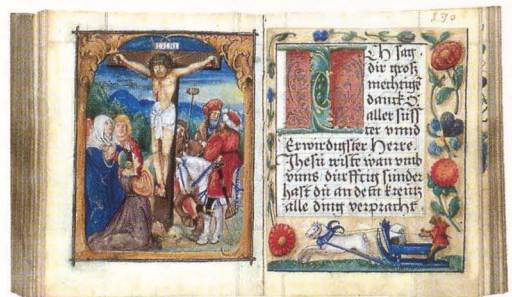 INRI
230
Ich sag
dir groß
mechtige
danck O
aller süss
ter vnnd
Erwirdigster Herre.
Jhesu Criste wan vmb
vnns dürfftig sünder
hast dü an dem kreütz
alle ding verpracht.